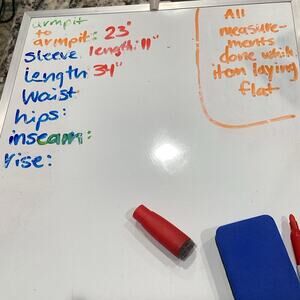 armpit
to
armpit: 23"
Sleeve length: 11"
length: 34"
Waist
hips:
inseam:
rise:
All
measure-
ments
done while
item laying
flat